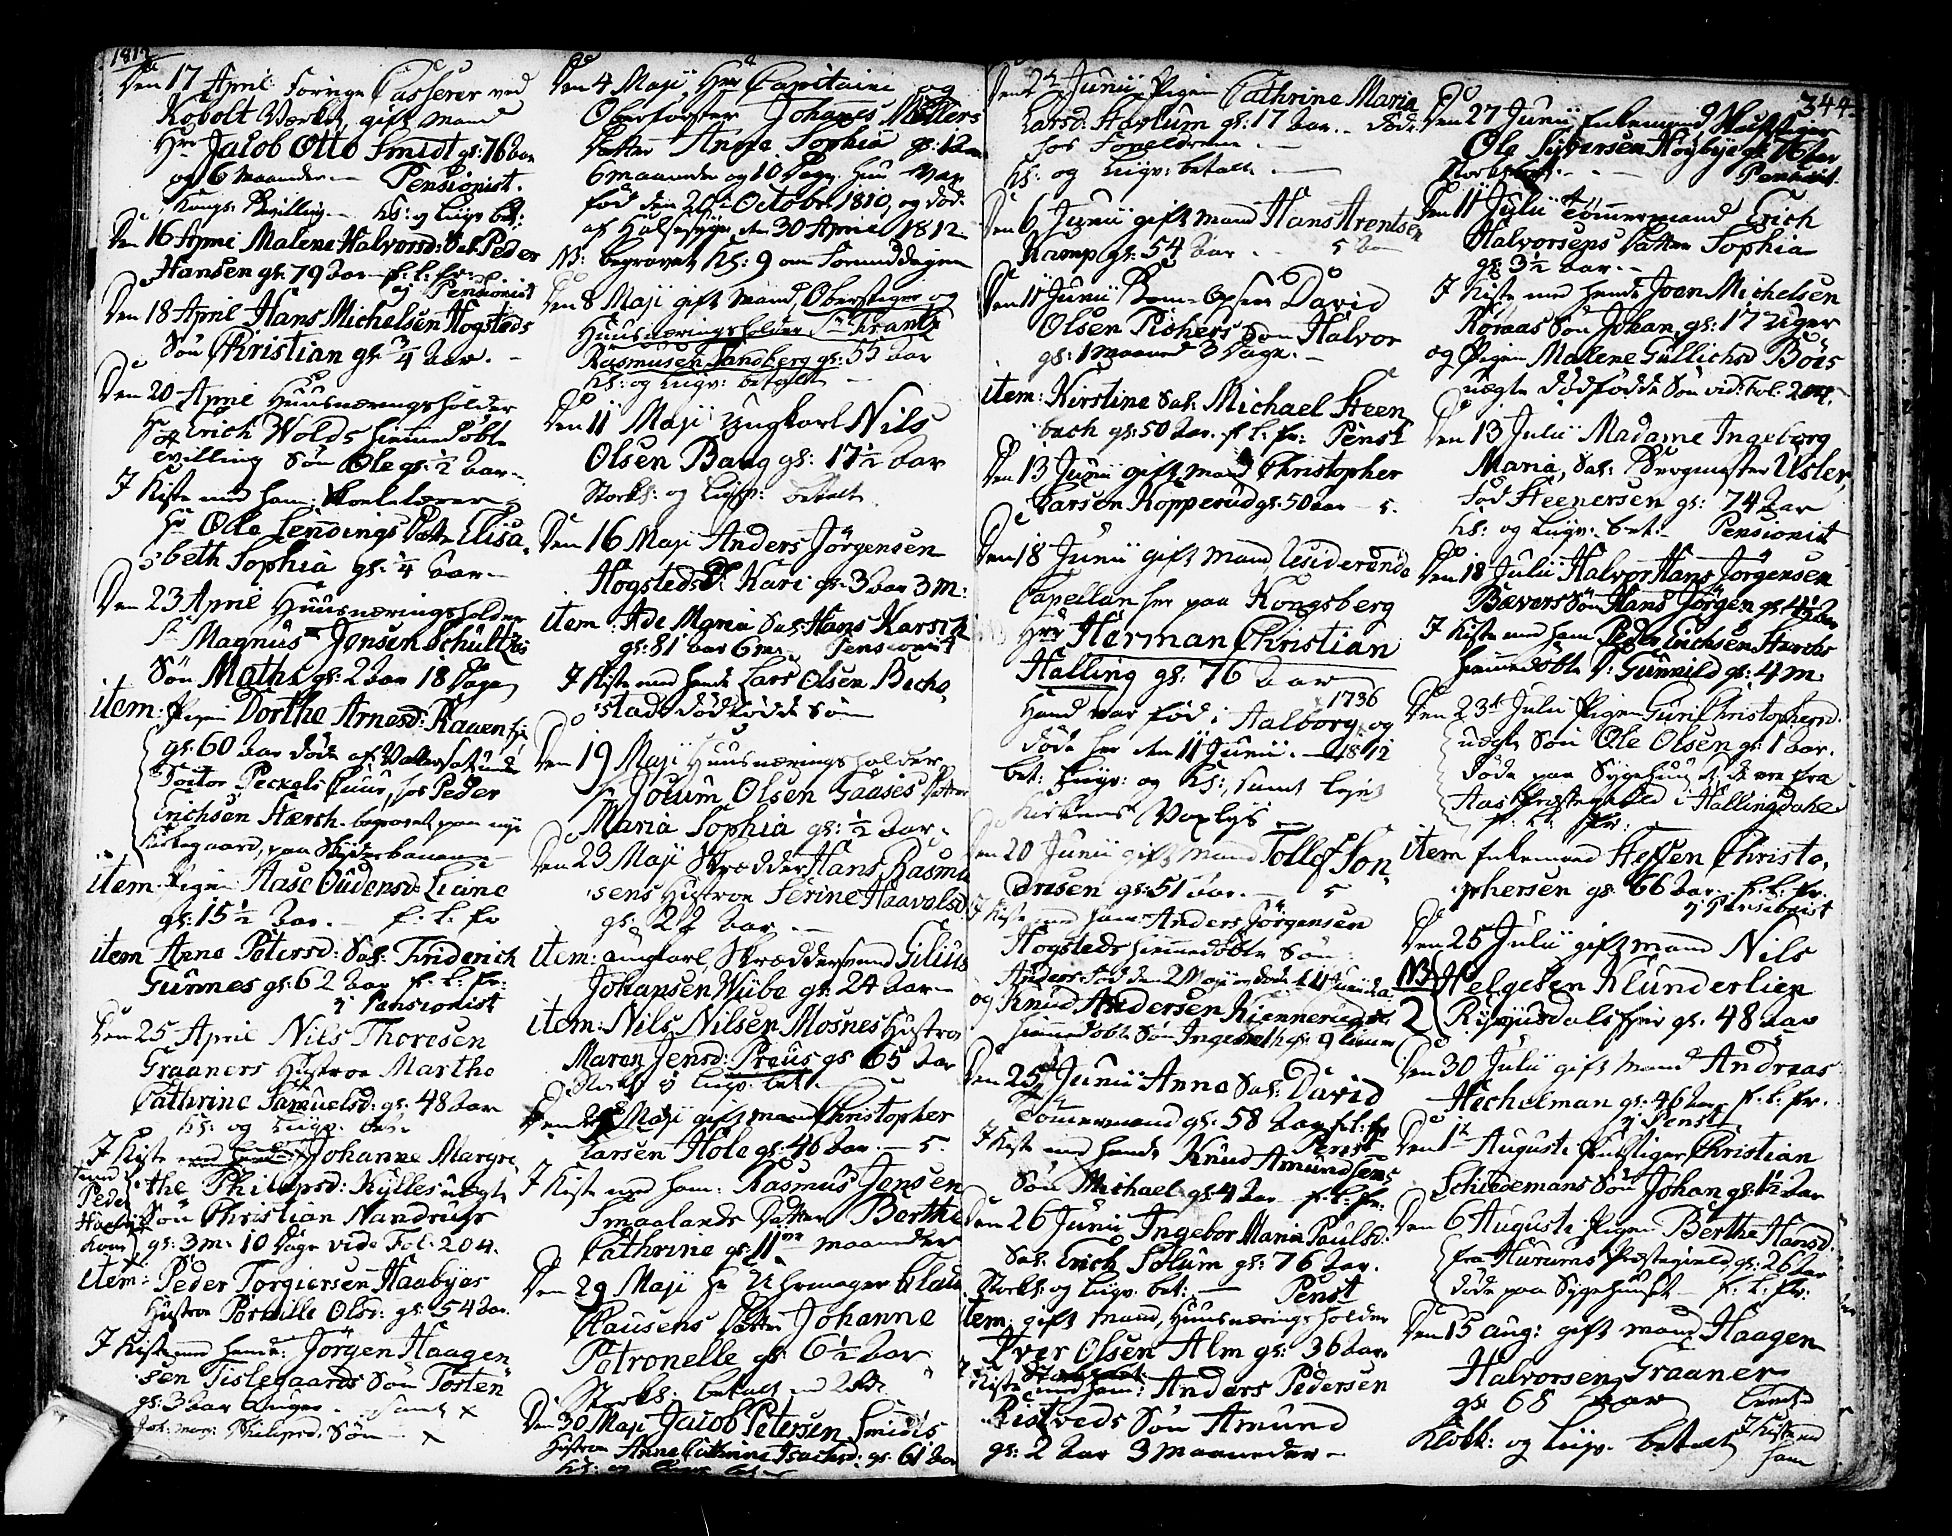 1812
Den 17 April forrige Casserer ved
Kobolt Værket, gift Mand
Hrr Jacob Otto Smidt gl: 76 Aar
og 6 Maaneder — Pensionist.
Kongl: Bevilling — Kl: og Liigv: bet:
Den 16 April Malene Halvorsd: Sal: Peder
Hansen gl: 79 Aar — f. l. fr.
ej Pensionist
Den 18 April Hans Michelsen Hogsteds
Søn Christian gl: 3/4 Aar. —
Den 20 April Huusnæringsholder
Erich Wolds hiemmedøbte
tvilling Søn Ole gl: 1/2 Aar —
I Kiste med ham Skoelelærer
Hr Ole Lendings Datter Elisa-
beth Sophia gl: 1/4 Aar —
Den 23 April Huusnæringsholder
Sr Magnus Jensen Schultzes
Søn Mathi gl: 2 Aar 18 Dage
item: Pigen Dorthe Arnesd: Raaen
gl: 60 Aar døde af Vattersot
Doctor Peckels Cuur, hos Peder
Erichsen Hærch begravet paa nye
Kirkegaard, paa Skyderbanen
item Pigen Aase Oudensd: Liane
gl: 15 1/2 Aar. — f. l. fr
item Anne Petersd: Sal: Friderich
Gunnes gl: 62 Aar f. l. fr:
ej Pensionist
Den 25 April Nils Thoresen
Graaners Hustroe Marthe
Cathrine Samuelsd: gl: 48 Aar
Kl: og Liigv. bet:
I Kiste med hende Johanne Margre
the Philipsd: Kylles uægte
Søn Christian Nandrup
gl: 3 m: 10 Dage vide Fol: 204.
item: Peder Torgiersen Haabyes
Hustroe Pernille Olsd: gl: 54 Aar
I Kiste med hende: Jörgen Haagen
sen Tislegaards Søn Tosten
gl: 3 Aar samt x
Joh: Marg: Philipsd. Søn — x
Den 4 Maji Hrr Capitaine og
Oberforster Johannes Møllers
Datter Anne Sophia gl: 1 Aar
6 maaneder og 10 Dage, hun var
fød den 20 October 1810, og død
af Halssyge den 30 April 1812
NB: begravet Kl: 9 om Formiddagen
Den 8 Maji gift Mand, Oberstiger og
Huusnæringsholder Sr Frantz
Rasmusen Sandberg gl: 55 Aar
Kl: og Liigv: betalt —
Den 11 Maji Ungkarl Nils
Olsen Bang gl: 17 1/2 Aar
Storkl: og Liigv: betalt
Den 16 Maji Anders Jörgensen
Hogsteds D: Kari gl: 3 Aar 3 m:
item: Ade Maria Sal: Hans Karsch
gl: 81 Aar 6 m. Pensionist
I Kiste med hende Lars Olsen Becho
stads dødfødde Søn
Den 19 Maji Huusnæringsholder
Sr Jocum Olsen Gaases Datter
Maria Sophia gl: 1/2 Aar.
Den 23 Maji Skrædder Hans Rasmu
sens Hustroe Serine Haavalsd:
gl: 22 Aar —
item: Ungkarl, Skræddersvend Gilius
Johansen Wiibe gl: 24 Aar —
item: Nils Nilsen Mosnes Hustroe
Maren Jensd: Preus gl 65 Aar
Storkl og Liigv. bet.
Den 25 Maji gift Mand Christopher
Larsen Hole gl: 46 Aar. — 5.
I Kiste med ham: Rasmus Jensen
Smaalands Datter Berthe
Cathrine gl: 11 maaneder
Den 29 Maji Hr Uhrmager Claus
Clausens Datter Johanne
Petronelle gl: 6 1/2 Aar
Storkl: betalt
Den 30 Maji Jacob Petersen Smidts
Hustroe Anne Cathrine Isachsd: gl: 61 Aar
Kl: og Liigv bet
Den 2 Junii Pigen Cathrine Maria
Larsd: Havlum gl: 17 Aar. — døde
hos Foreldrene —
Kl: og Liigv: betalt —
Den 6 Junii gift Mand Hans Arentsen
Kamp gl: 54 Aar
Den 11 Junii Bom-Opseer David
Olsen Pishers Søn Halvor
gl: 1 maaned 3 Dage. —
item: Kirstine Sal: Michael Steen
bach gl: 50 Aar. f. l. fr: Penst
Den 13 Junii gift Mand Christopher
Larsen Kopperud gl: 50 Aar — 5.
Den 18 Junii gift Mand, Residerende
Capellan her paa Kongsberg
Hrr Herman Christian
Halling gl: 76 Aar
Hand var fød i Aalborg 1736 og
døde her den 11 Junii. — 1812
bet: Liigv: og Kl:, samt lejet
Kirkens Voxlys —
Den 20 Junii gift Mand Tollef Jon
Drasen gl: 51 Aar. — 5
I Kiste med ham Anders Jörgensen
Hogsteds hiemmedøbte Søn:
Anders fød den 2 Maji og døde 14 Junii
og Knud Andersen Kienneruds
hiemmedøbte Søn Ingebreth gl: 9 timer
Den 25 Junii Anne Sal: David
Tömmermand gl: 58 Aar f. l. fr
Penst
I Kiste med hende Knud Amundsens
Søn Michael gl: 4 Aar f. l. fr:
Den 26 Junii Ingebor Maria Paulsd:
Sal: Erich Solum gl: 76 Aar.
Storkl: og Liigv: bet: — Penst
item: gift Mand, Huusnæringsholder
Iver Olsen Alm gl: 36 Aar
I Kiste med ham: Anders Pedersen
Ristveds Søn Amund
gl: 2 Aar 3 Maaneder —
344
Den 27 Junii Enkemand
Ole Syversen Högbye gl: 76 Aar
Storkl: bet: — Penst
Den 11 Julii Tömmermand Erich
Halvorsens Datter Sophia
gl: 3 1/2 Aar. —
I Kiste med hende Joen Michelsen
Koraas Søn Johan, gl: 17 Uger
og Pigen Malene Gullichsd Böes
uægte dødfødde Søn vid: Fol: 204.
Den 13 Julii Madame Ingeborg
Maria, Sal: Bergmester Usler,
fød Steenersen gl: 74 Aar
Kl: og Liigv: bet: — Pensionist
Den 18 Julii Halvor Hans Jörgensen
Bævers Søn Hans Jörgen gl: 4 1/2 Aar
I Kiste med ham Peder Erichsen Hærchs
hiemmedøbte D: Gunnild gl: 4 m.
Den 23 Julii Pigen Guri Christophersd.
uægte Søn Ole Olsen gl: 1 Aar.
døde paa Sygehuuset, de ere fra
Aas Præstegield i Hallingdahl
f: l: fr:
item Enkemand Steffen Christo,
phersen gl: 66 Aar f. l. fr.
ej Pensionist
Den 25 Julii gift Mand Nils
NB Helgesen Klunderlien
2 Rijejusdals gl: 48 Aar
Den 30 Julii gift Mand Andreas
Hechelman gl: 46 Aar f. l. fr.
ej Penst
Den 1 Augusti Christian
Schiedemans Søn Johan gl: 1 1/2 Aar
Den 6 Augusti Pigen Berthe Hansd:
fra Hurums Præstegield, gl: 26 Aar
døde paa Sygehuuset — f. l. fr:
Den 15 Aug: gift Mand Haagen
Halvorsen Graaner
gl: 68 Aar
Klokk: og Liigv. betalt
I Kiste med
ham